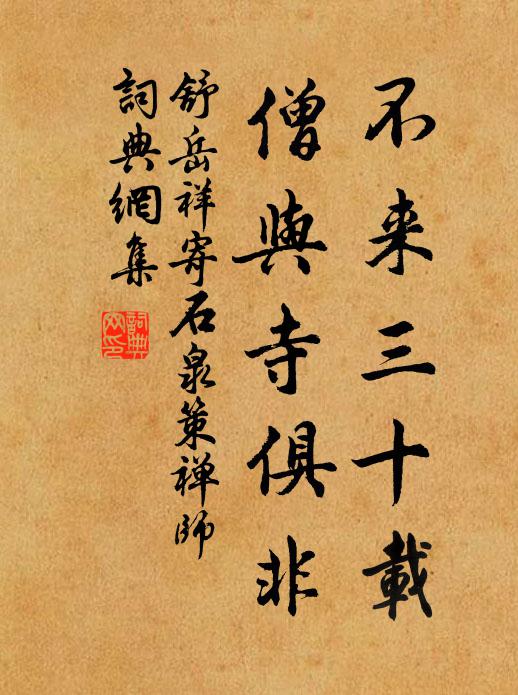 不来三十載
僧與寺俱非
舒岳祥寄石泉策禅師
詞典網集
詞典網印